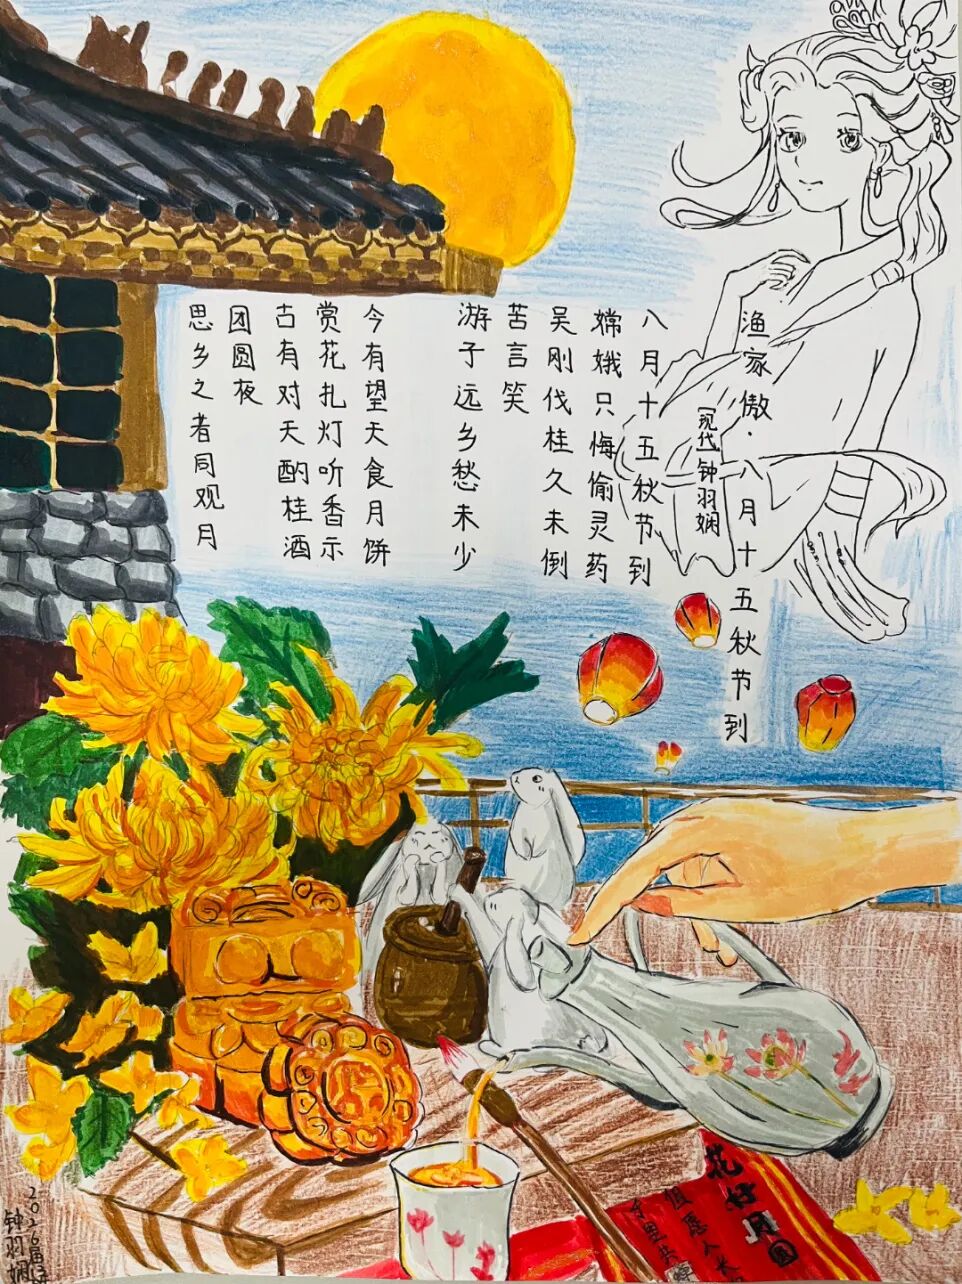 渔家傲·八月十五秋节到
(现代)钟羽娴
八月十五秋节到
嫦娥只悔偷灵药
吴刚伐桂久未倒
苦言笑
游子远乡愁未少
今有望天食月饼
赏花扎灯听香示
古有对天酌桂酒
团圆夜
思乡之者同观月
花好月圆
但愿人长
千里共婵
2026届
钟羽娴